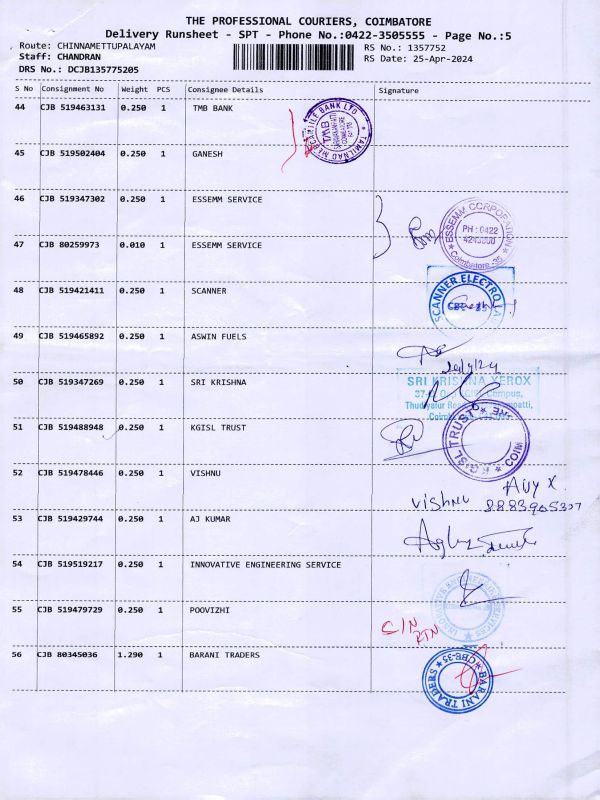 THE PROFESSIONAL COURIERS, COIMBATORE
Delivery Runsheet - SPT - Phone No.:0422-3505555 - Page No.:5
Route: CHINNAMETTUPALAYAM RS No.: 1357752
Staff: CHANDRAN RS Date: 25-Apr-2024
DRS No.: DCJB135775205
S No Consignment No Weight PCS Consignee Details Signature
44 CJB 519463131 0.250 1 TMB BANK
TAMILNAD MERCANTILE BANK LTD
TMB
45 CJB 519502404 0.250 1 GANESH
46 CJB 519347302 0.250 1 ESSEMM SERVICE
ESSEMM CORPORATION
PH : 0422
Coimbatore-35
47 CJB 80259973 0.010 1 ESSEMM SERVICE
48 CJB 519421411 0.250 1 SCANNER
SCANNER ELECTRO
49 CJB 519465892 0.250 1 ASWIN FUELS
50 CJB 519347269 0.250 1 SRI KRISHNA
SRI KRISHNA XEROX
51 CJB 519488948 0.250 1 KGISL TRUST
KGISL TRUST COIM
52 CJB 519478446 0.250 1 VISHNU
Vishnu
8883905307
53 CJB 519429744 0.250 1 AJ KUMAR
54 CJB 519519217 0.250 1 INNOVATIVE ENGINEERING SERVICE
55 CJB 519479729 0.250 1 POOVIZHI
C/N
RTN
56 CJB 80345036 1.290 1 BARANI TRADERS
BARANI TRADERS
CBE-35